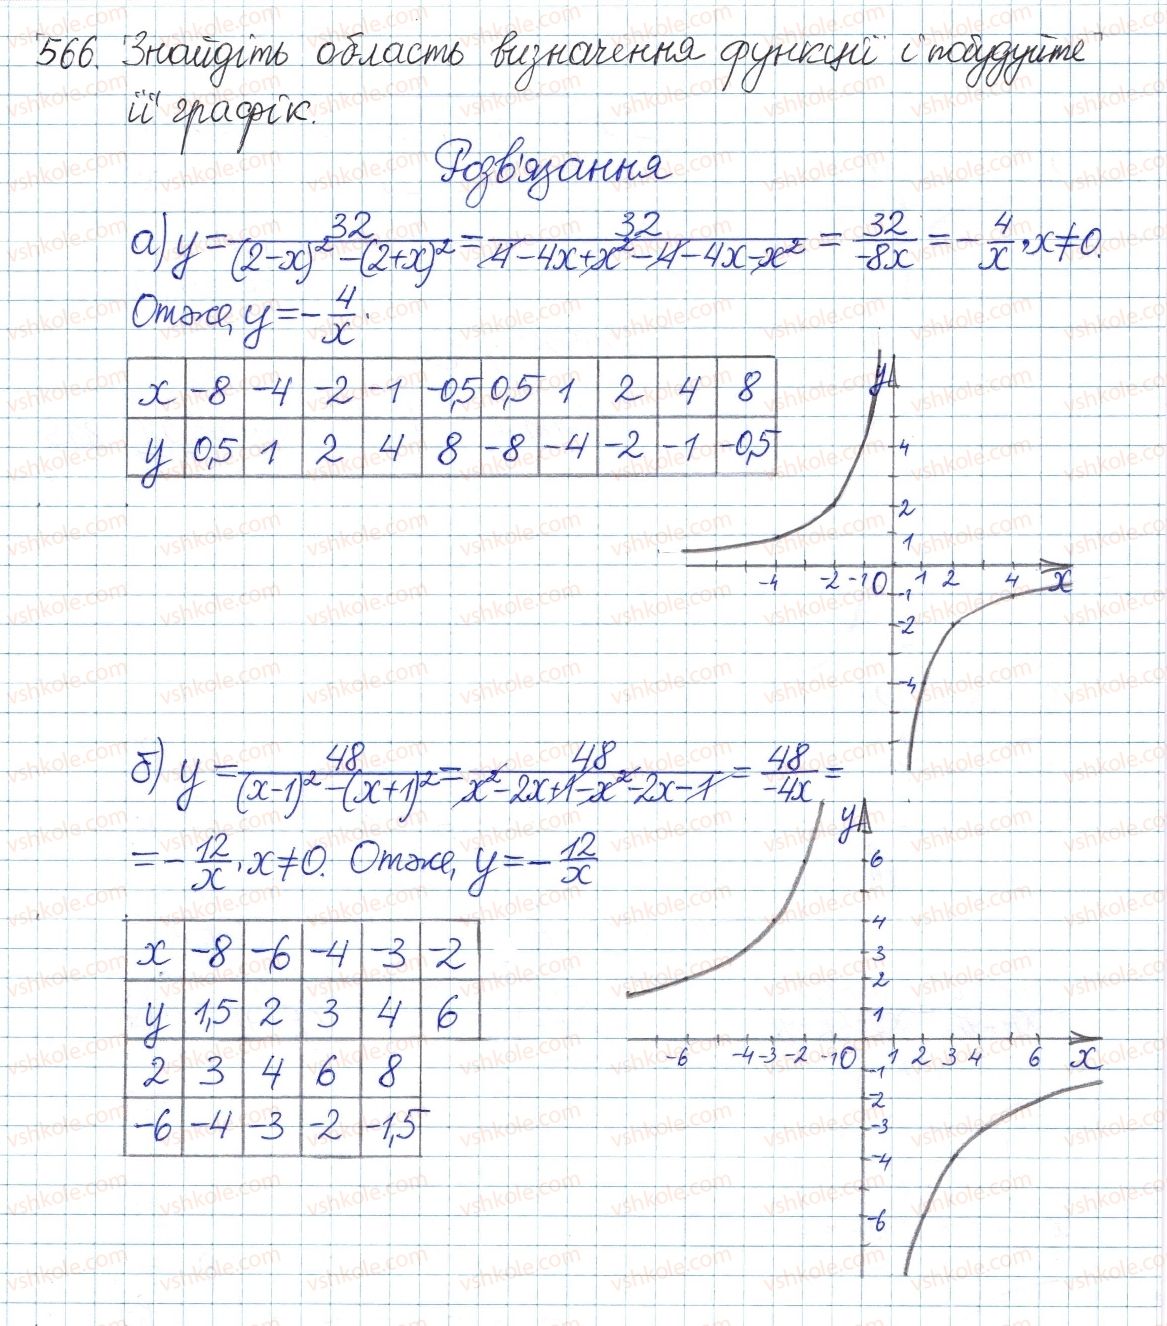 566. Знайдіть область визначення функції і побудуйте
її графік.
Розв'язання
а) y = 32/((2-x)² - (2+x)²) = 32/(4 - 4x + x² - 4 - 4x - x²) = 32/(-8x) = -4/x, x ≠ 0.
Отже, y = -4/x.
x -8 -4 -2 -1 -0,5 0,5 1 2 4 8
y 0,5 1 2 4 8 -8 -4 -2 -1 -0,5
y
4
2
1
-4 -2 -1 0 1 2 4 x
-1
-2
-4
б) y = 48/((x-1)² - (x+1)²) = 48/(x² - 2x + 1 - x² - 2x - 1) = 48/(-4x) =
= -12/x, x ≠ 0. Отже, y = -12/x
x -8 -6 -4 -3 -2
y 1,5 2 3 4 6
2 3 4 6 8
-6 -4 -3 -2 -1,5
y
6
4
3
2
1
-6 -4 -3 -2 -1 0 1 2 3 4 6 x
-1
-2
-3
-4
-6
vshkole.com